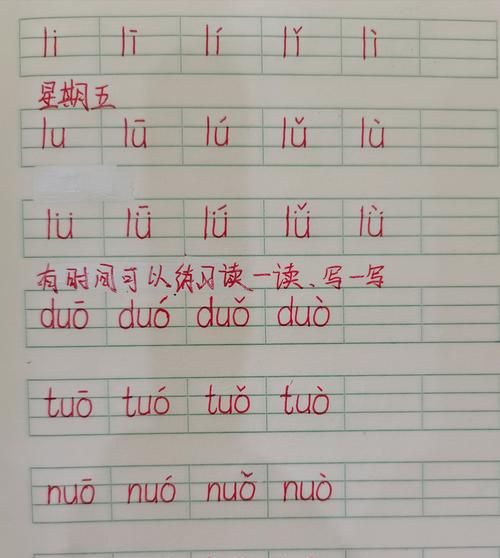 li lī lí lǐ lì
星期五
lu lū lú lǔ lù
lü lǖ lǘ lǚ lǜ
有时间可以练习读一读、写一写
duō duó duǒ duò
tuō tuó tuǒ tuò
nuō nuó nuǒ nuò